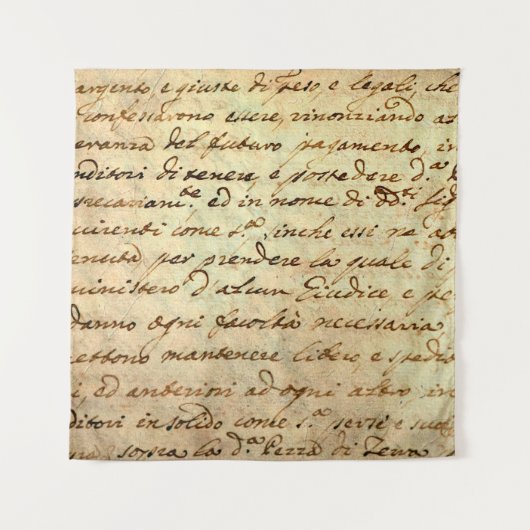 argento, e giuste di Peso, e legali, che
confessarono essere, rinonziando a
eranza del futuro pagamento, in
nditori di tenere, e possedere d.ª
precariam.te ed in nome di dd.ti Sig
uirenti come s.ª, finche essi ne
tenuta per prendere la quale di
ministero d'alcun Giudice, e pe
danno ogni facoltà necessaria
ettono mantenere libero, e spedit
i, ed anteriori ad ogni altro, in
ditori in solido come s.ª per se e suc
sopra la d.ª Pezza di Terra